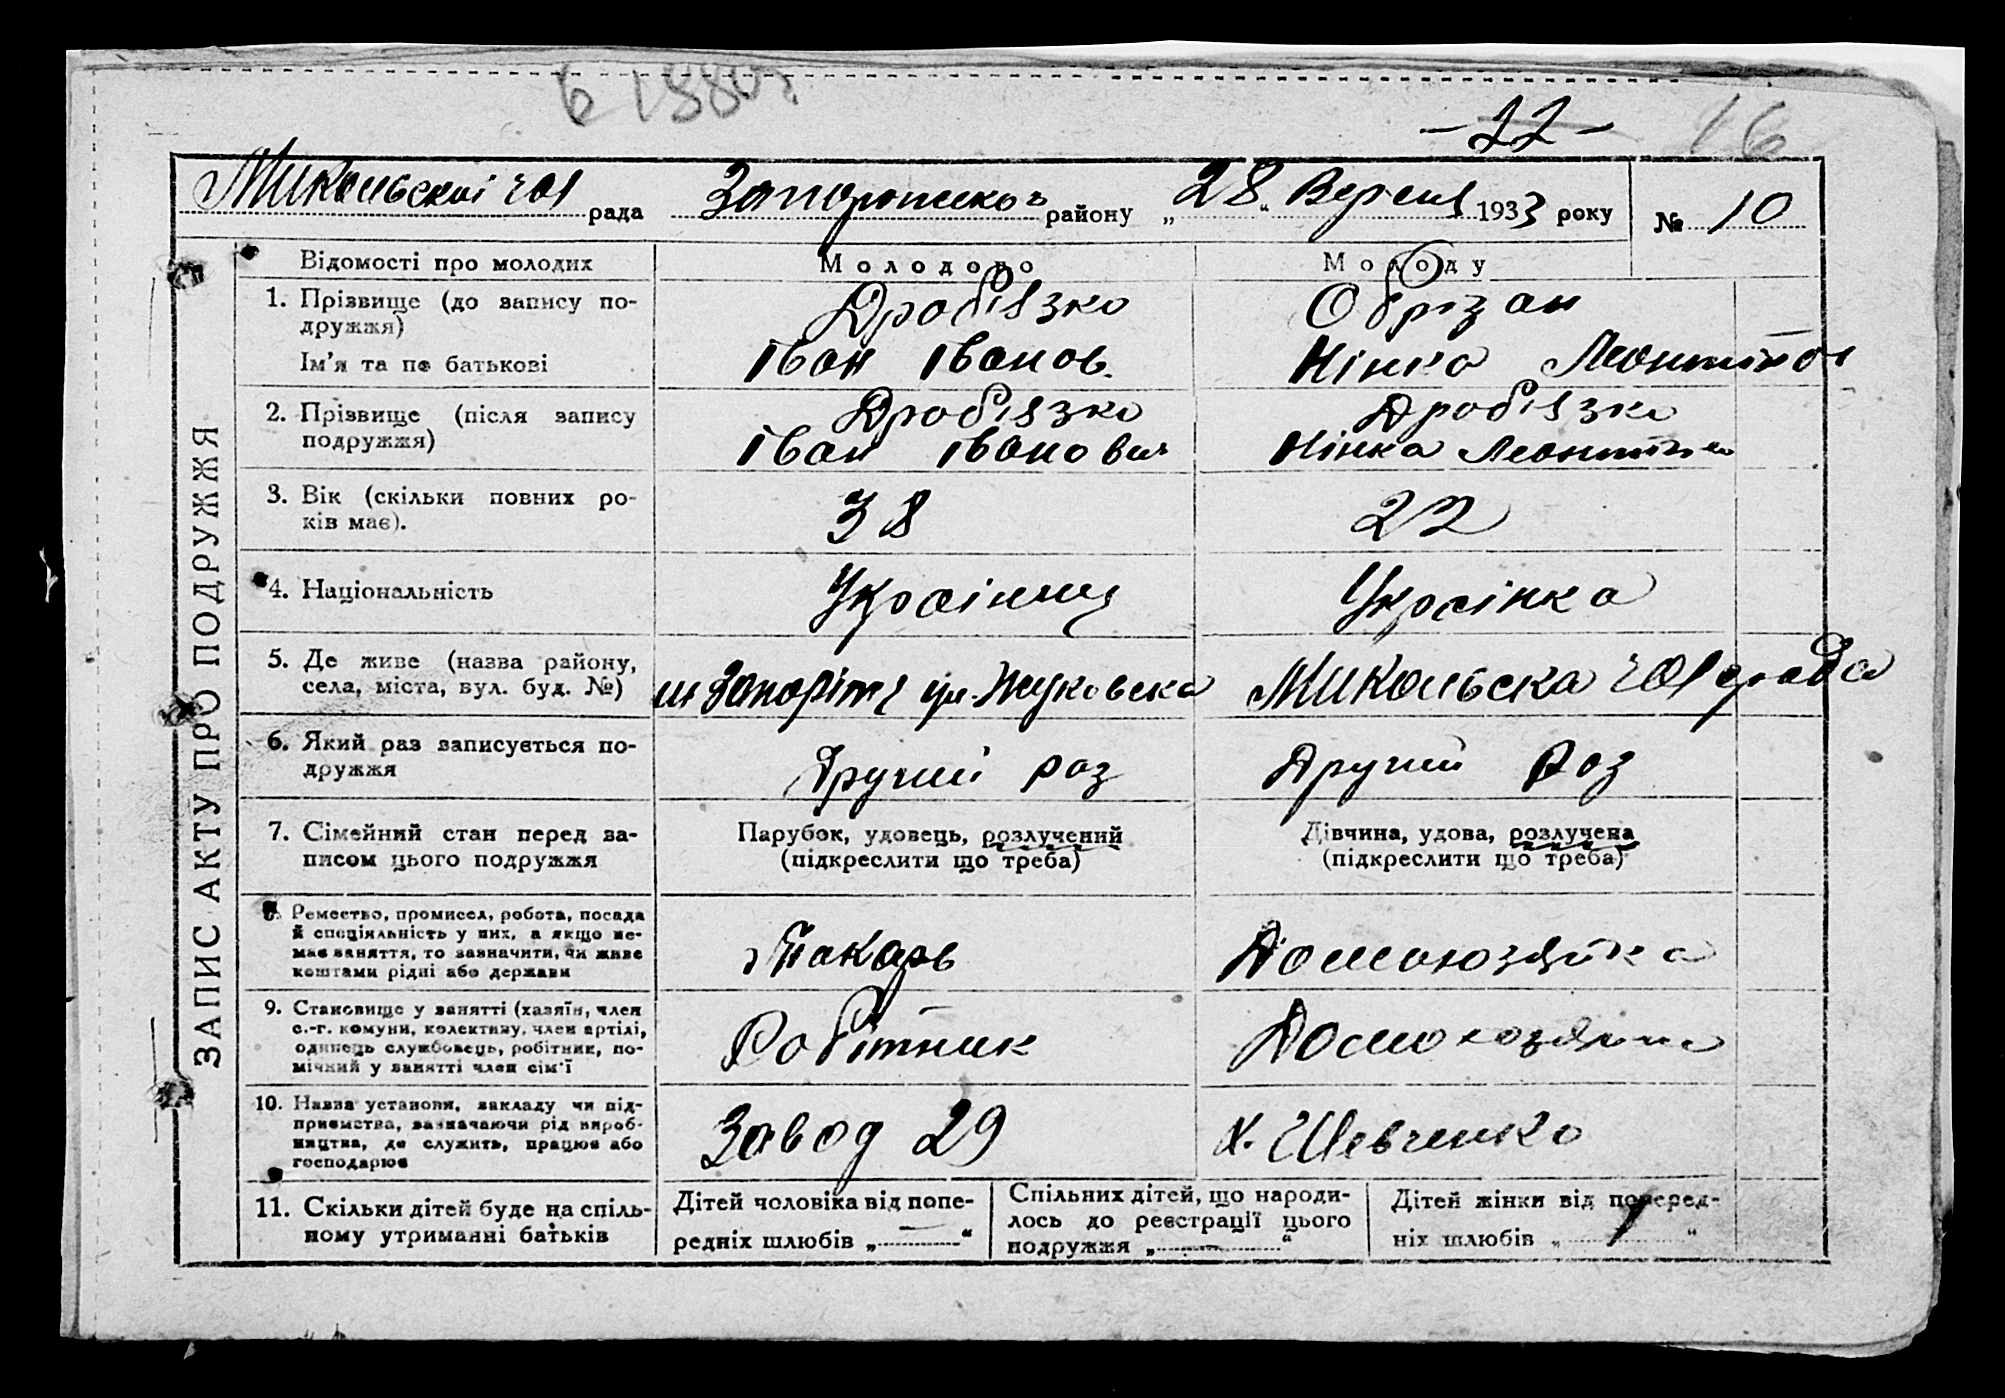 б 1880г
- 22 -
16
Микольської рада Запорізьког району „28“ Вересня 1933 року № 10
ЗАПИС АКТУ ПРО ПОДРУЖЖЯ
Відомості про молодих Молодого Молоду
1. Прізвище (до запису по-
дружжя)
Дробязко Обрізан
Ім'я та по батькові Іван Іванов. Нінка
2. Прізвище (після запису
подружжя)
Дробязко Дробязко
Іван Іванович Нінка
3. Вік (скільки повних ро-
ків має).
38 22
4. Національність Українец Українка
5. Де живе (назва району,
села, міста, вул. буд. №)
м Запоріжж вул. Жуковська Микольська рада
6. Який раз записується по-
дружжя
Другий раз Другий раз
7. Сімейний стан перед за-
писом цього подружжя
Парубок, удовець, розлучений
(підкреслити що треба)
Дівчина, удова, розлучена
(підкреслити що треба)
8. Ремество, промисел, робота, посада
й специяльність у них, а якщо не-
має заняття, то зазначити, чи живе
коштами рідні або держави
Пакарь Домохозяйка
9. Становище у занятті (хазяїн, член
с.-г. комуни, колективу, член артілі,
одинець службовець, робітник, по-
мічний у занятті член сім'ї
Робітник Домохозяйка
10. Назва установи, закладу чи під-
приємства, зазначаючи рід вироб-
ництва, де служить, працює або
господарює
Завод 29 х. Шевченко
11. Скільки дітей буде на спіль-
ному утриманні батьків
Дітей чоловіка від попе-
редніх шлюбів „—“
Спільних дітей, що народи-
лось до реєстрації цього
подружжя „—“
Дітей жінки від поперед-
ніх шлюбів „1“